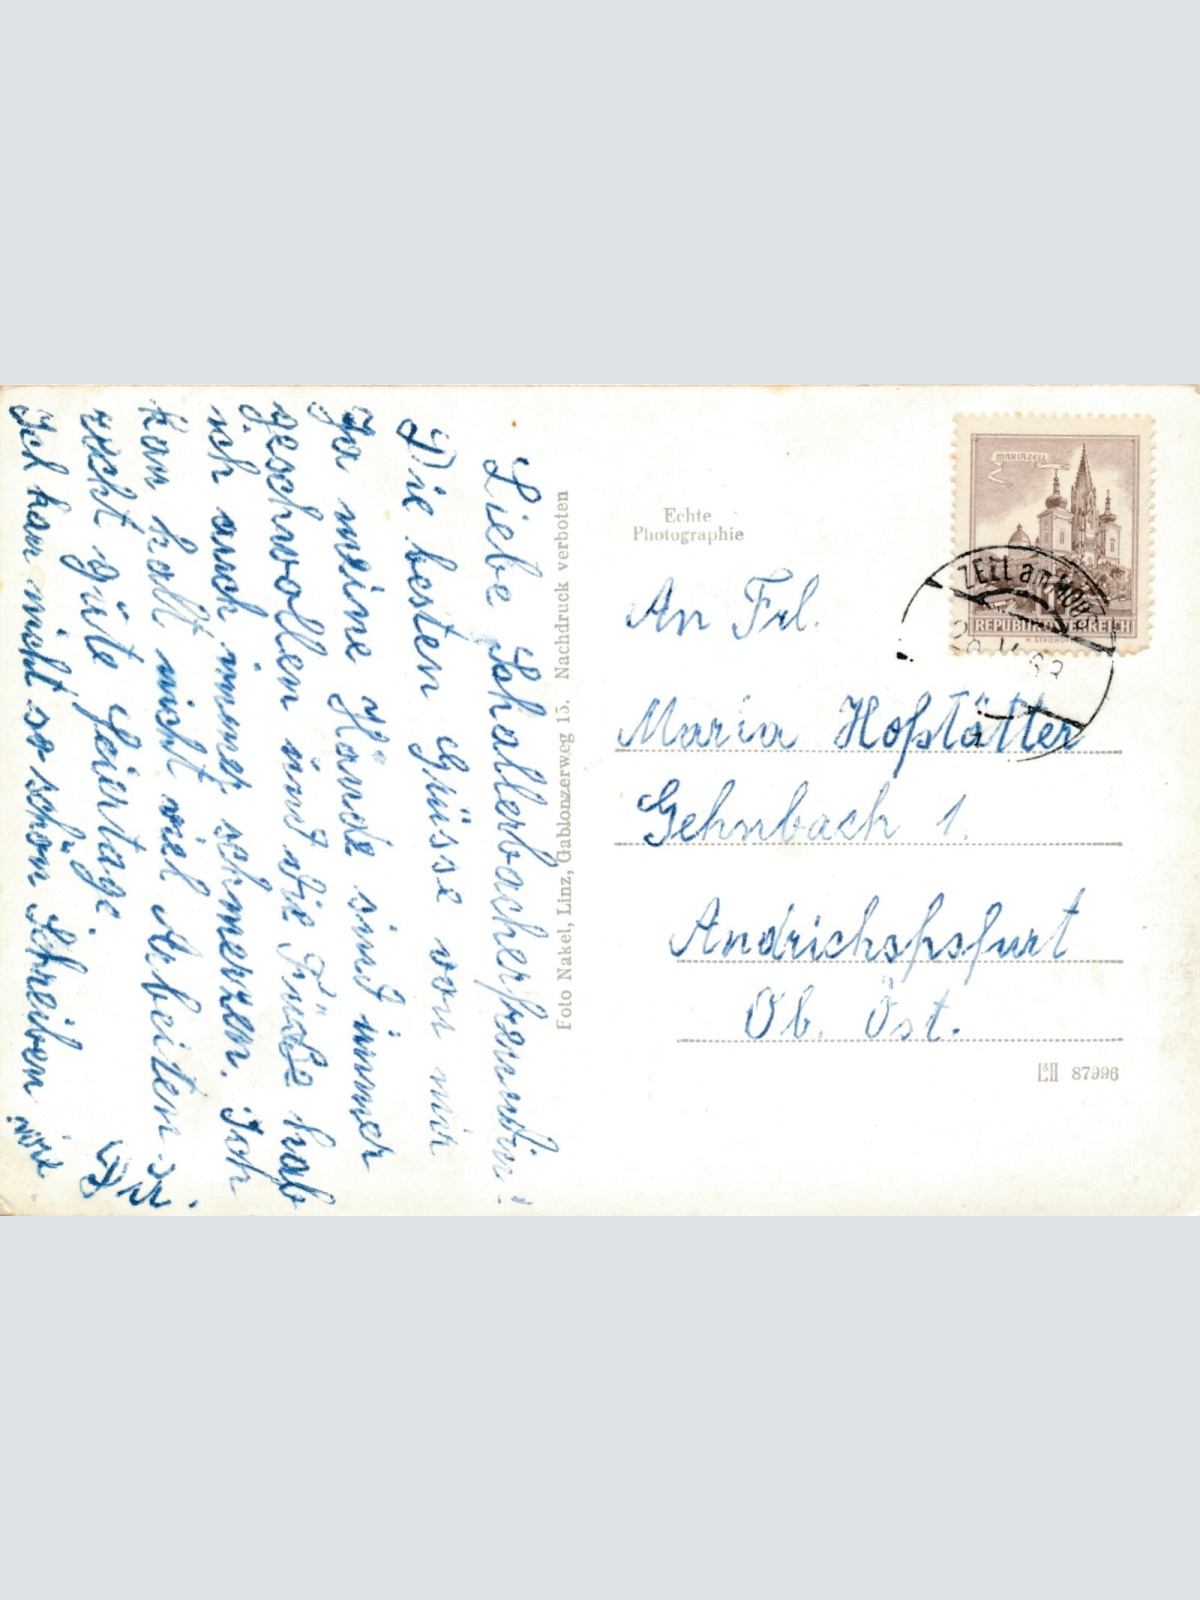 Liebe Schallerbacherfreundin!
Die besten Grüsse von mir
Ja meine Hände sind immer
geschwollen und die Füsse hab
ich auch immer schmerzen. Ich
kan halt nicht viel Arbeiten.
recht güte Feiertage. Dir
Ich kan nicht so schön Schreiben wie
Foto Nakel, Linz, Gablonzerweg 15. Nachdruck verboten
Echte
Photographie
MARIAZELL
REPUBLIK ÖSTERREICH
ZELL am MOOS
An Frl.
Maria Hofstätter
Gehnbach 1.
Andrichspsfurt
Ob. Öst.
L&H 87996